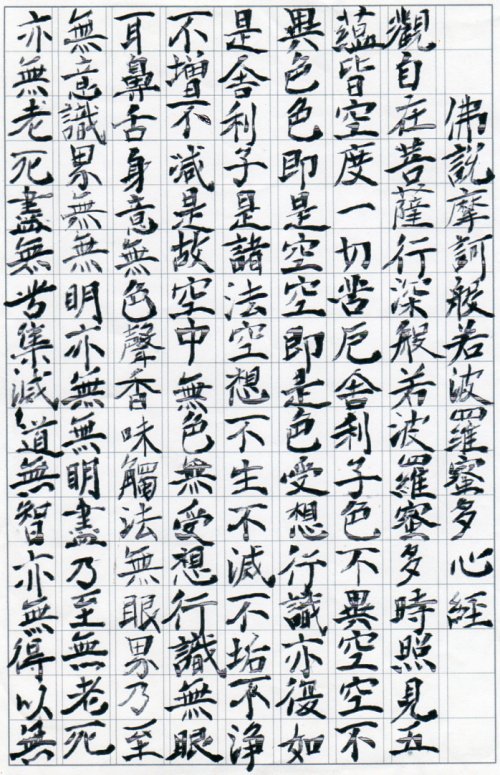 佛説摩訶般若波羅蜜多心経
觀自在菩薩行深般若波羅蜜多時照見五
蘊皆空度一切苦厄舎利子色不異空空不
異色色即是空空即是色受想行識亦復如
是舎利子是諸法空想不生不滅不垢不浄
不増不減是故空中無色無受想行識無眼
耳鼻舌身意無色聲香味觸法無眼界乃至
無意識界無無明亦無無明盡乃至無老死
亦無老死盡無苦集滅道無智亦無得以無